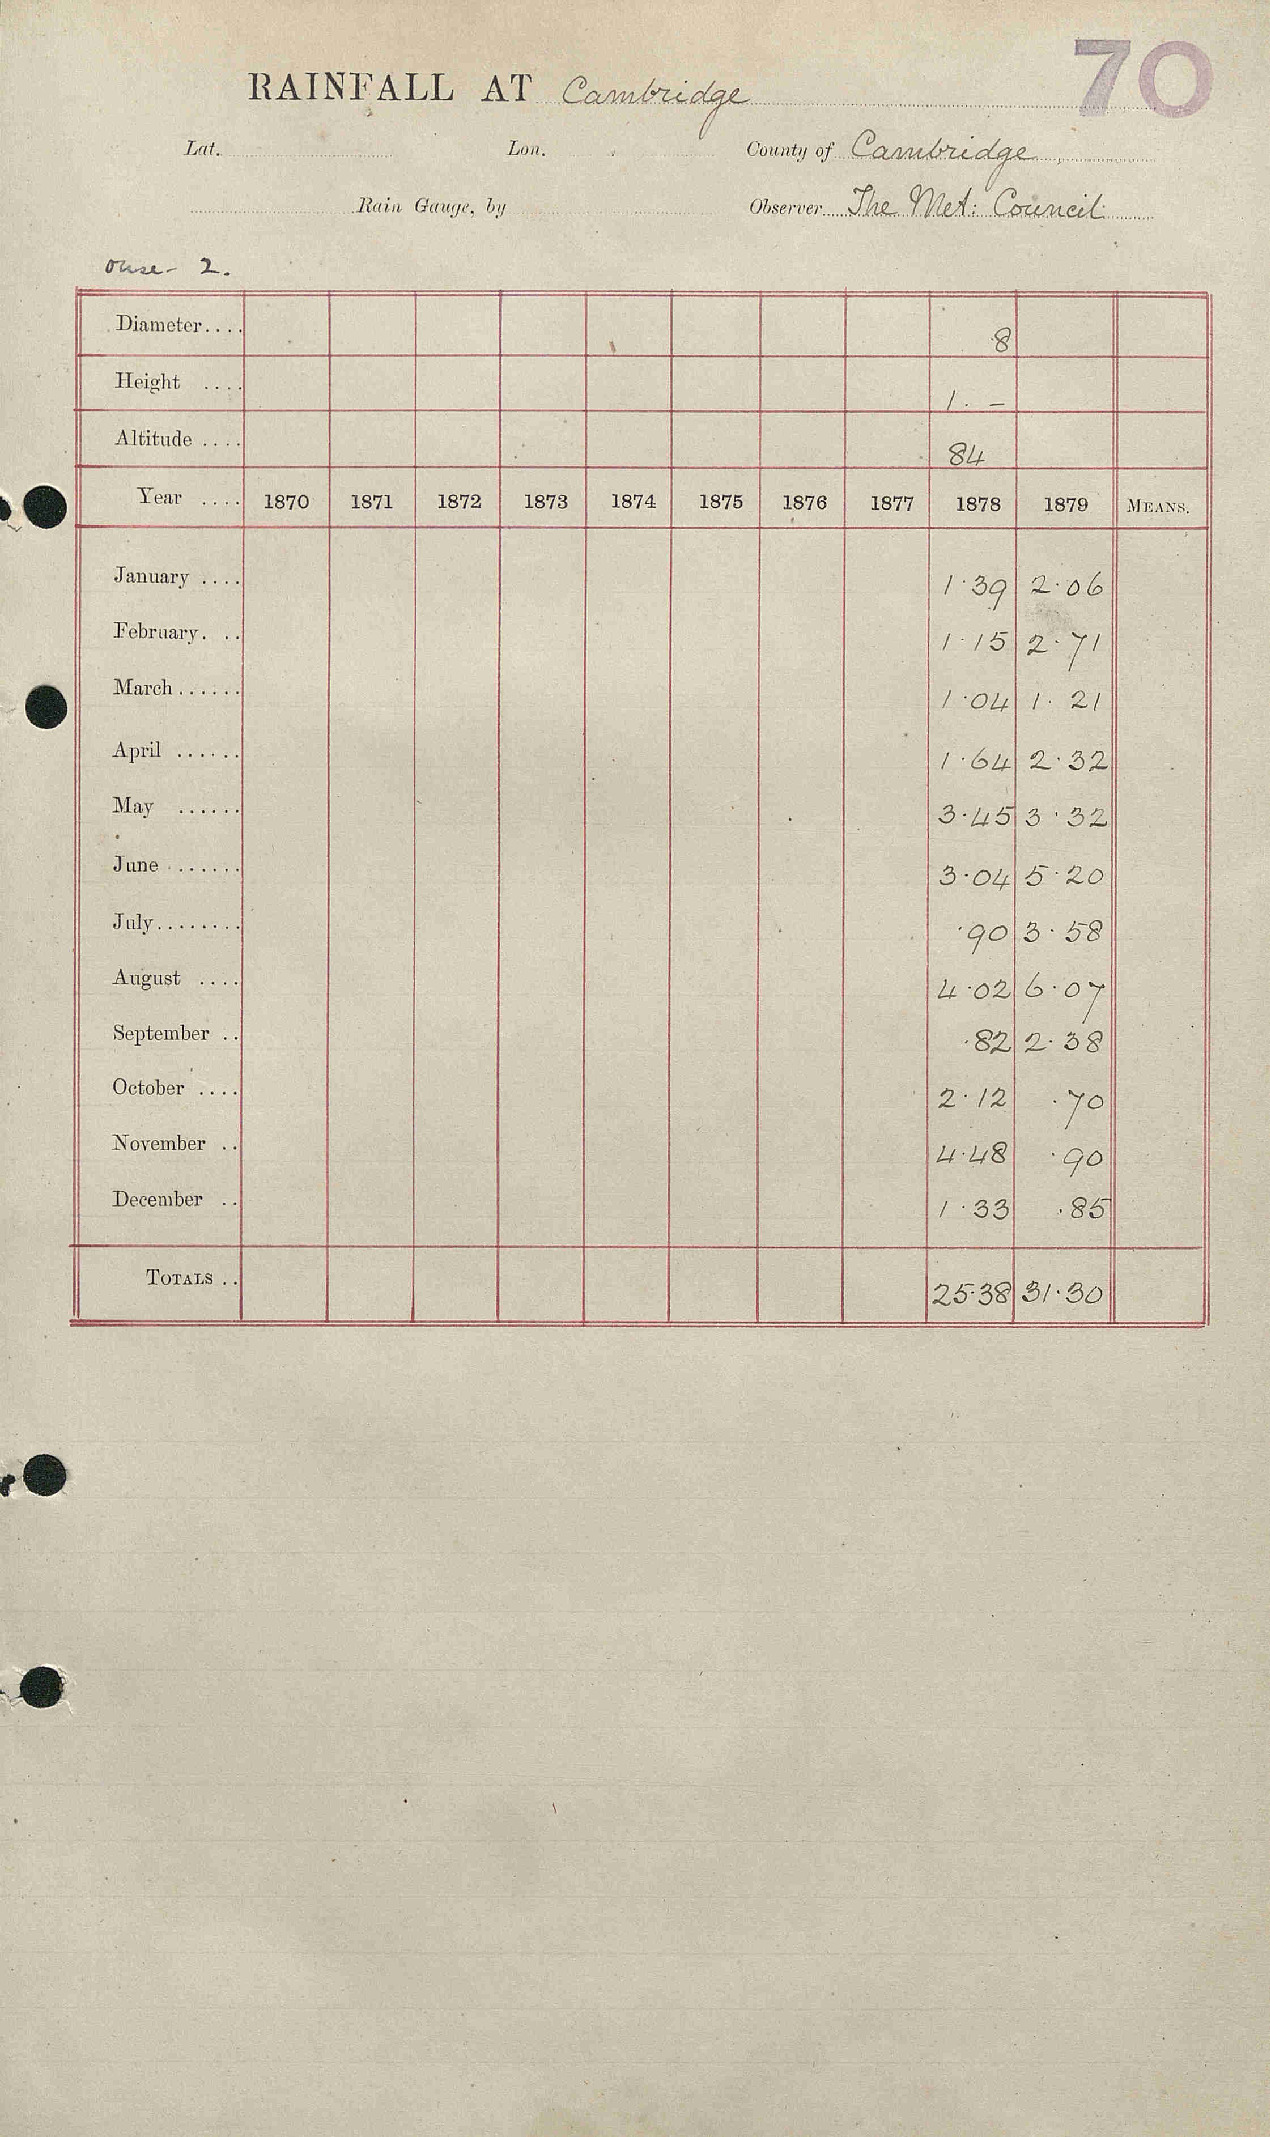 70
RAINFALL AT Cambridge
Lat. Lon. County of Cambridge
Rain Gauge, by Observer The Met: Council
Ouse - 2.
Diameter.... 8
Height .... 1 · –
Altitude .... 84
Year .... 1870 1871 1872 1873 1874 1875 1876 1877 1878 1879 MEANS.
January .... 1·39 2·06
February. .. 1·15 2·71
March...... 1·04 1·21
April ...... 1·64 2·32
May ...... 3·45 3·32
June ....... 3·04 5·20
July........ ·90 3·58
August .... 4·02 6·07
September .. ·82 2·38
October .... 2·12 ·70
November .. 4·48 ·90
December .. 1·33 ·85
TOTALS .. 25·38 31·30